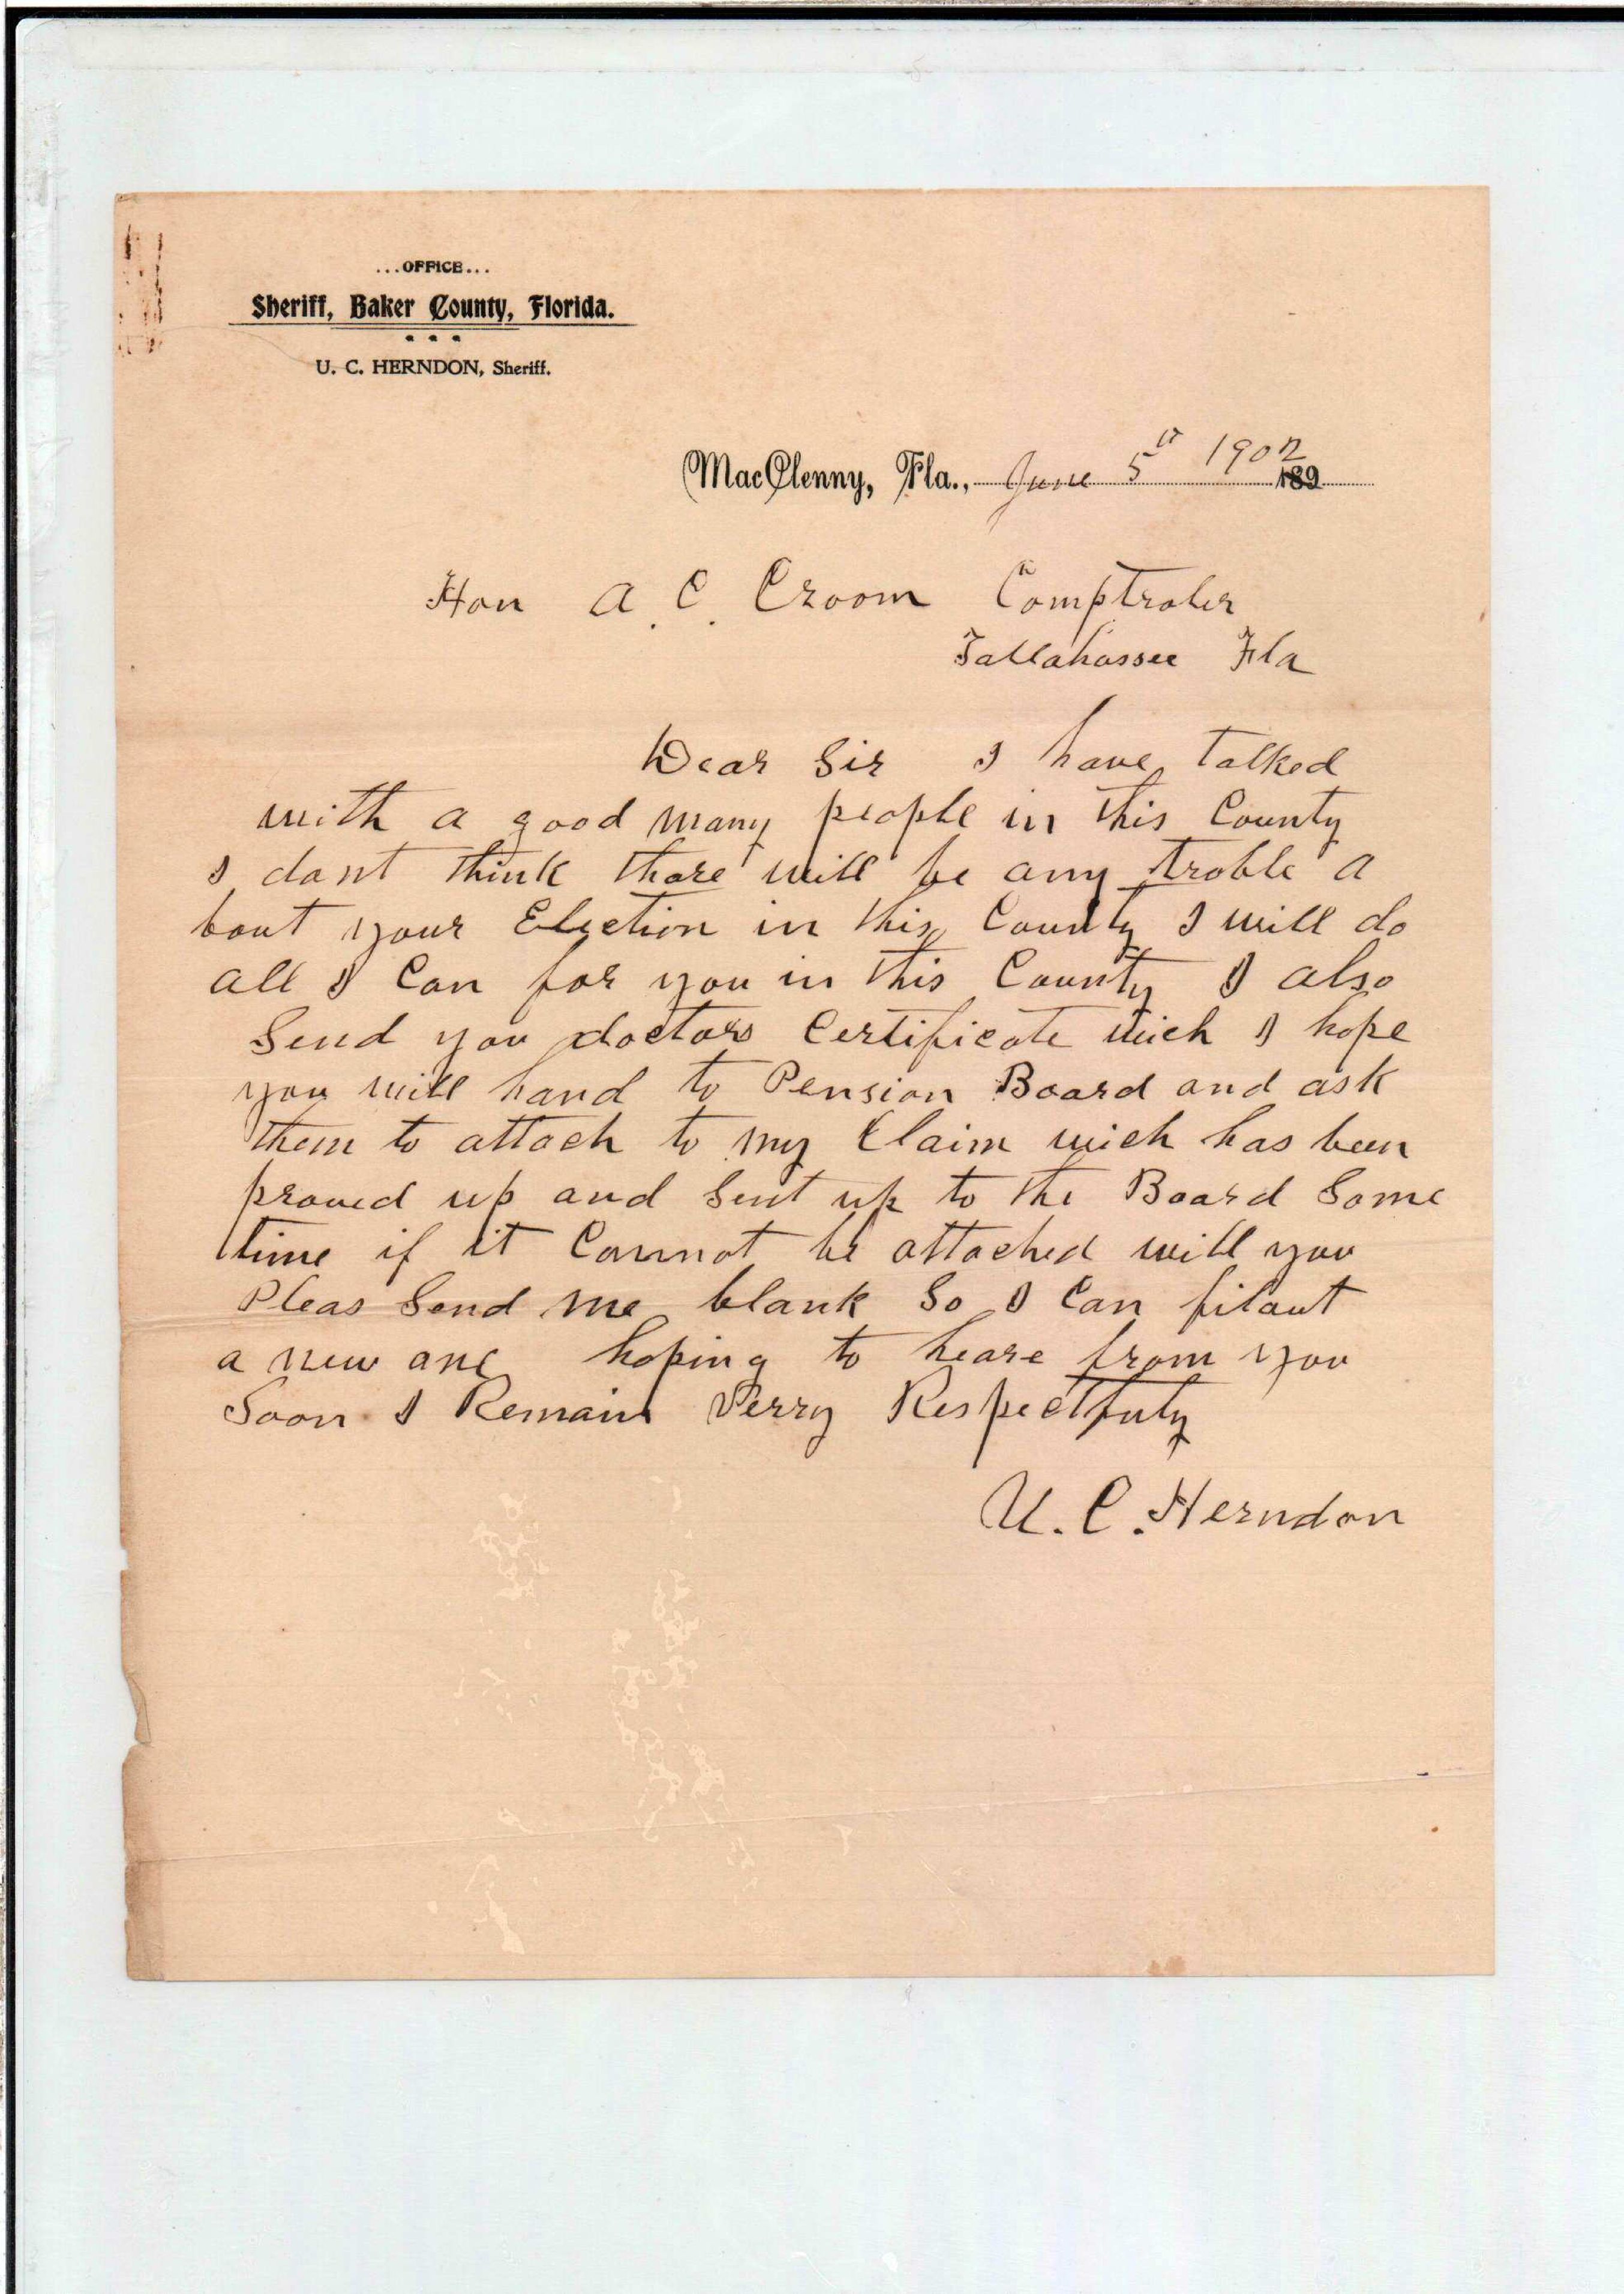 ...OFFICE...
Sheriff, Baker County, Florida.
U. C. HERNDON, Sheriff.
MacClenny, Fla., June 5th 1902 189
Hon A. C. Croom Comptroler
Tallahassee Fla
Dear Sir I have talked
with a good many people in this County
I dont think thare will be any troble a
bout your Election in this County I will do
all I Can for you in this County I also
Send you doctors Certificate wich I hope
you will hand to Pension Board and ask
them to attach to my Claim wich has been
proved up and Sent up to the Board Some
time if it Connot be attached will you
Pleas Send me blank So I Can filout
a new one hoping to heare from you
Soon I Remain Verry Respectfuly
U. C. Herndon